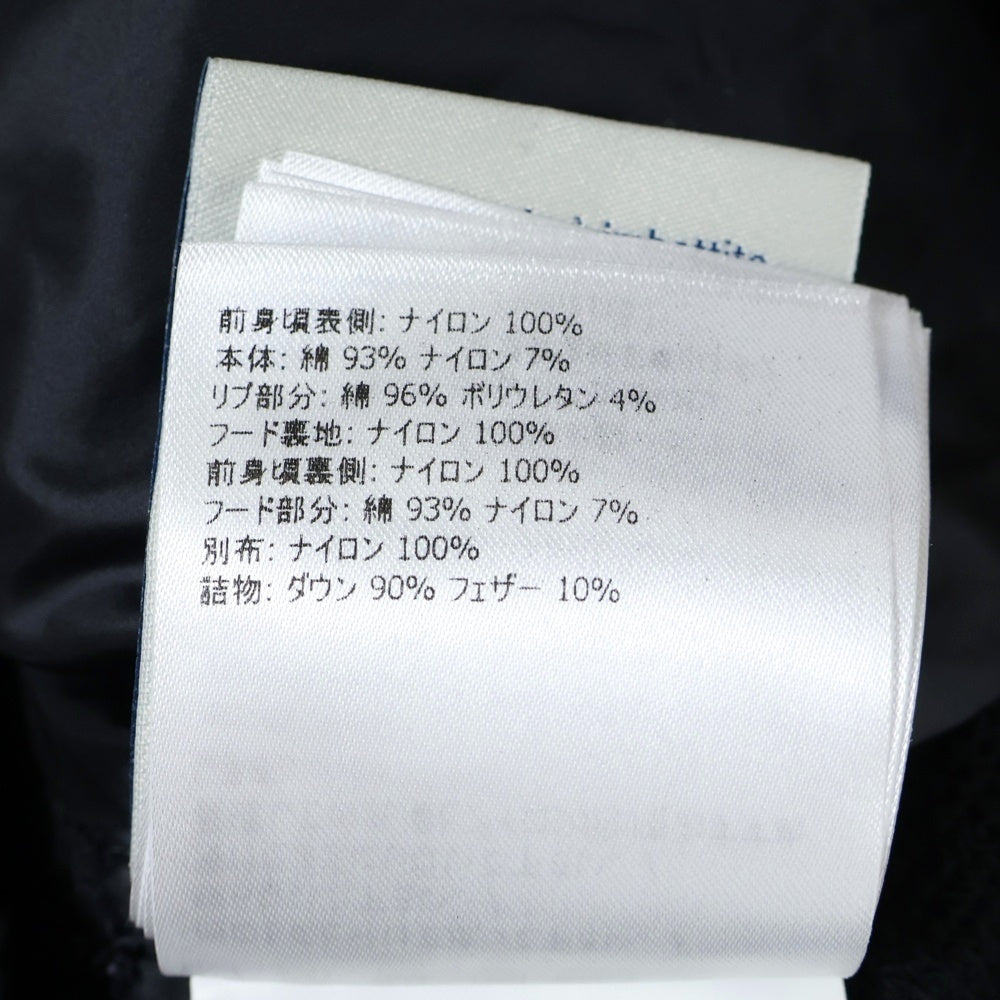 前身頃表側: ナイロン 100%
本体: 綿 93% ナイロン 7%
リブ部分: 綿 96% ポリウレタン 4%
フード裏地: ナイロン 100%
前身頃裏側: ナイロン 100%
フード部分: 綿 93% ナイロン 7%
別布: ナイロン 100%
詰物: ダウン 90% フェザー 10%